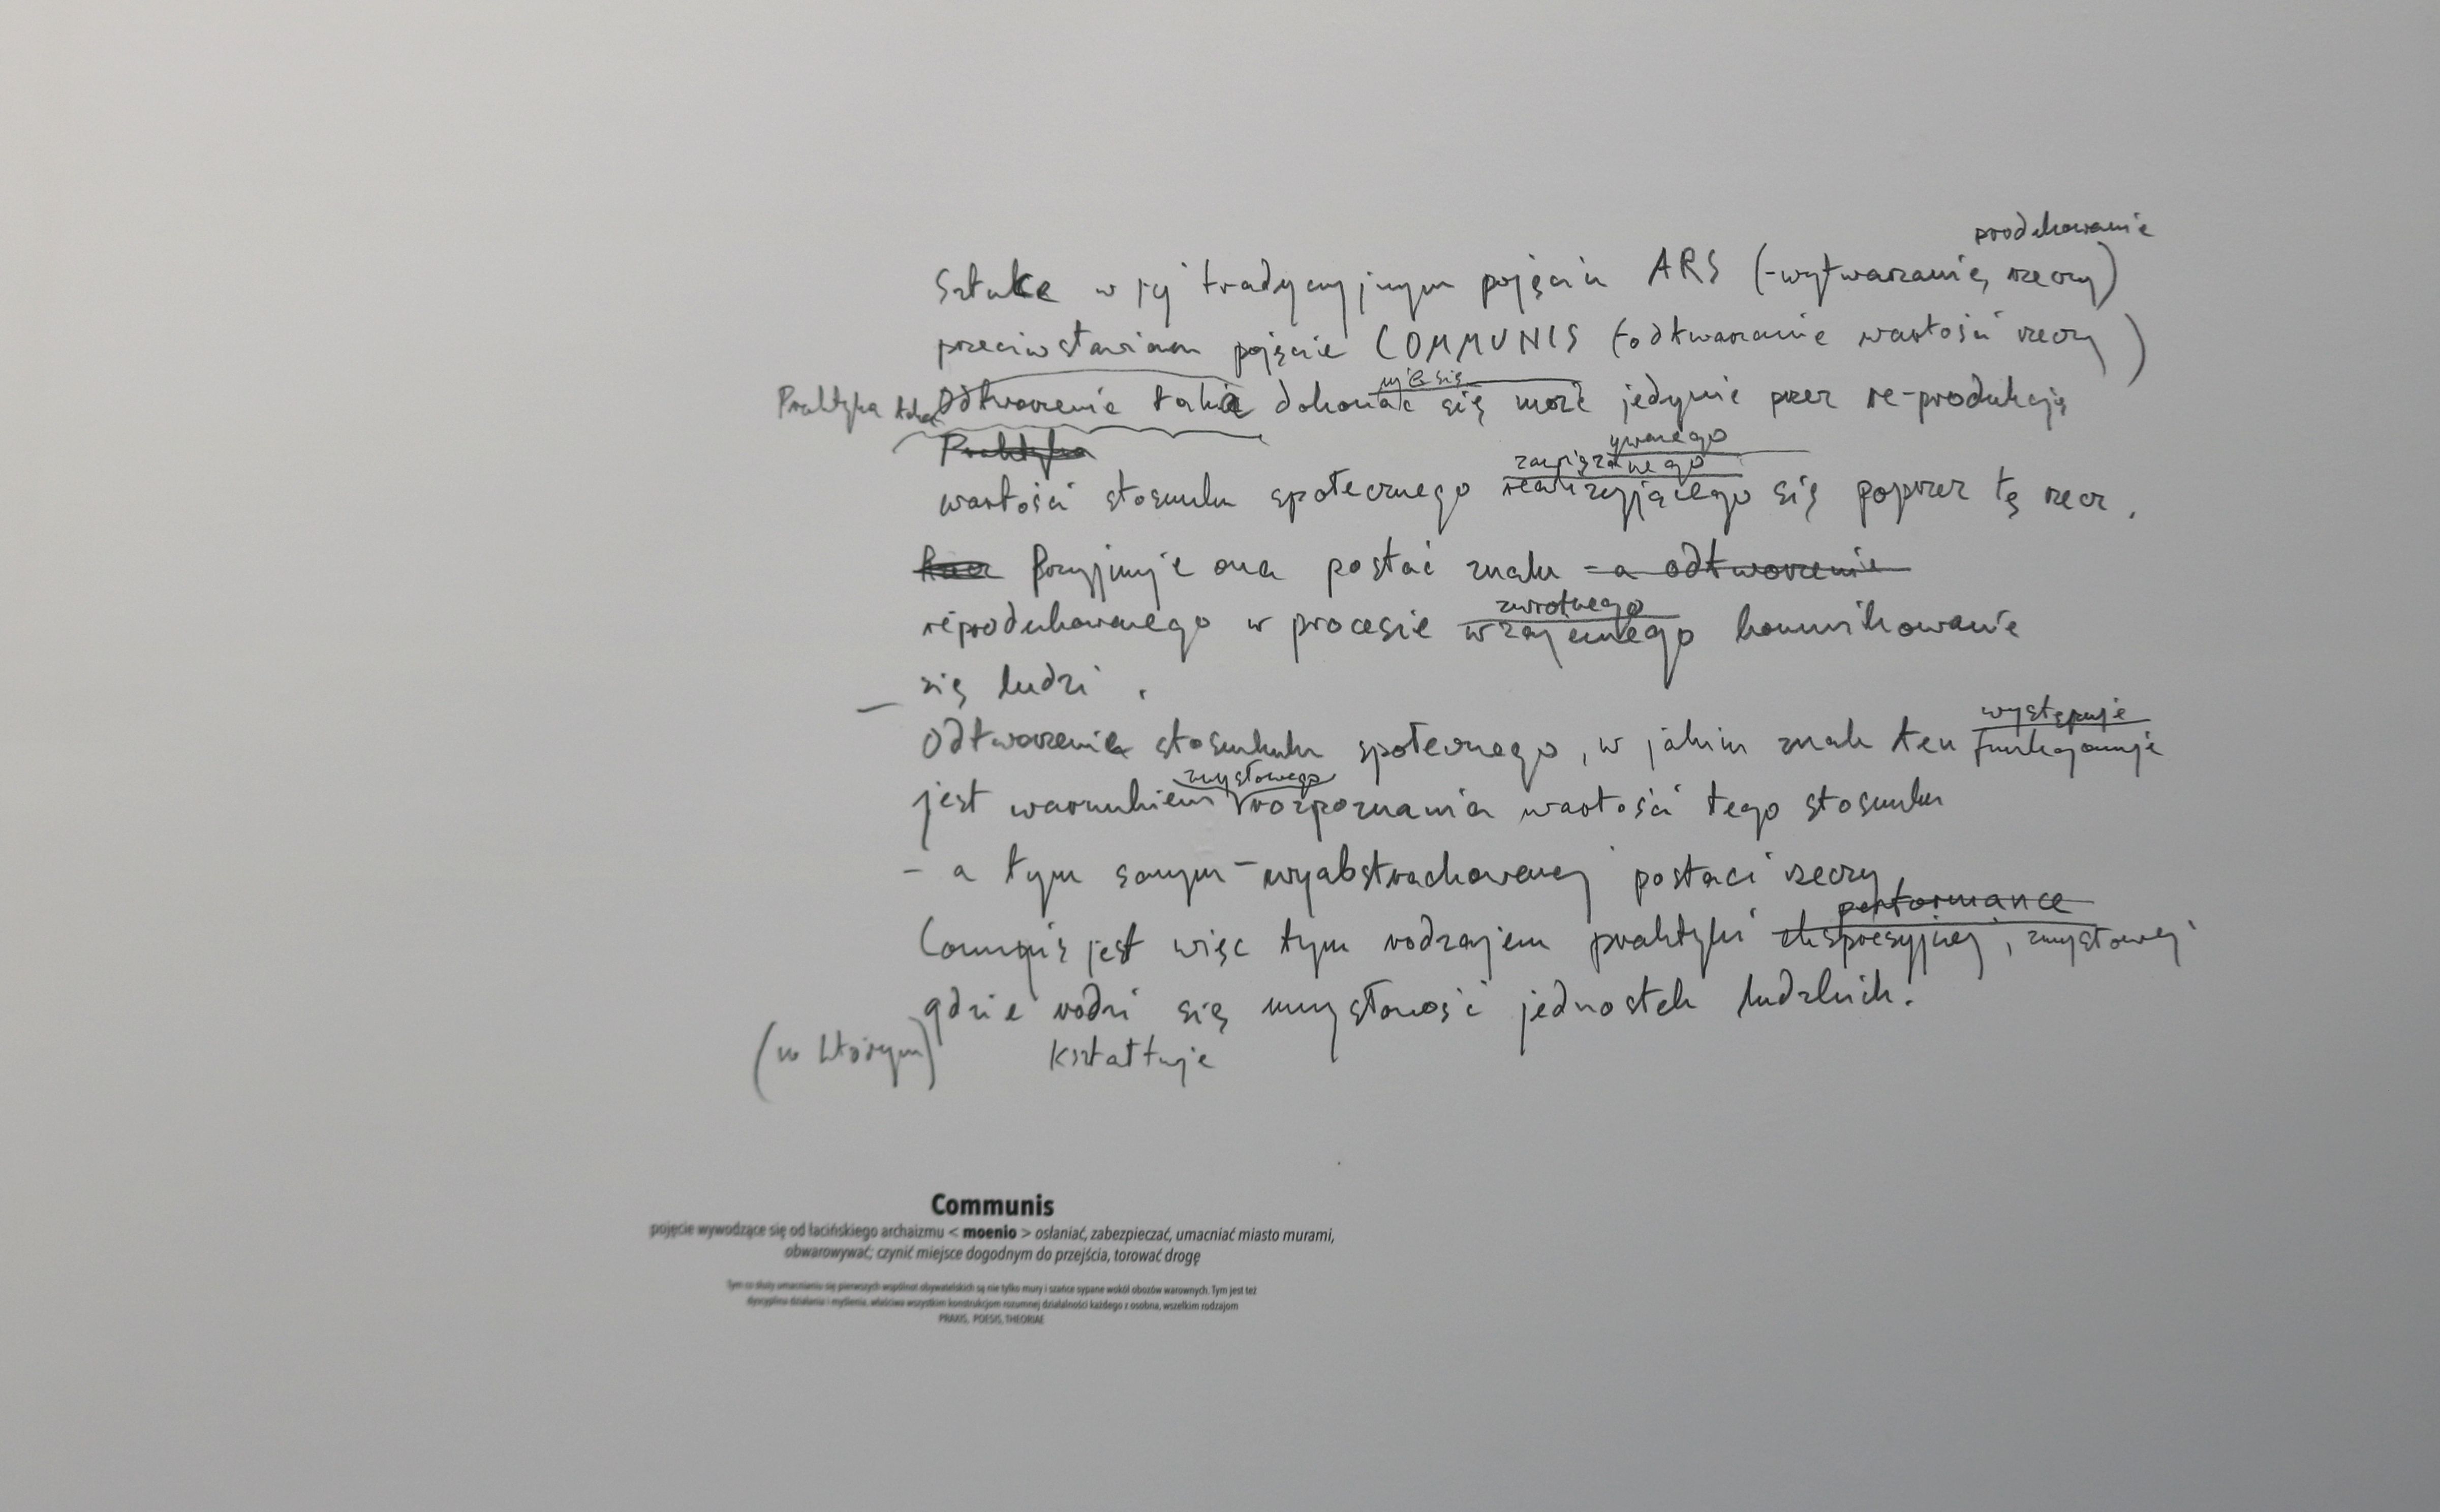 produkowanie
Sztuce w jej tradycyjnym pojęciu ARS (-wytwarzanie, rzeczy)
przeciwstawiam pojęcie COMMUNIS (odtwarzanie wartości rzeczy)
Praktyka taka Odtworzenie takie dokonać się może jedynie przez re-produkcję
Praktyka
ywanego
zawiązanego
wartości stosunku społecznego realizującego się poprzez tę rzecz.
Przyjmuje ona postać znaku - a odtworzenie
zwrotnego
reprodukowanego w procesie wzajemnego komunikowania
się ludzi.
występuje
Odtworzenie stosunku społecznego, w jakim znak ten funkcjonuje
zmysłowego
jest warunkiem rozpoznania wartości tego stosunku
- a tym samym - wyabstrachowanej postaci rzeczy
performance
Communis jest więc tym rodzajem praktyki ekspresyjnej, zmysłowej
gdzie rodzi się umysłowość jednostek ludzkich.
(w którym) kształtuje
Communis
pojęcie wywodzące się od łacińskiego archaizmu < moenio > osłaniać, zabezpieczać, umacniać miasto murami,
obwarowywać; czynić miejsce dogodnym do przejścia, torować drogę
Tym co służy umacnianiu się pierwszych wspólnot obywatelskich są nie tylko mury i szańce sypane wokół obozów warownych. Tym jest też
dyscyplina działania i myślenia, właściwa wszystkim konstrukcjom rozumnej działalności każdego z osobna, wszelkim rodzajom
PRAXIS, POESIS, THEORIAE